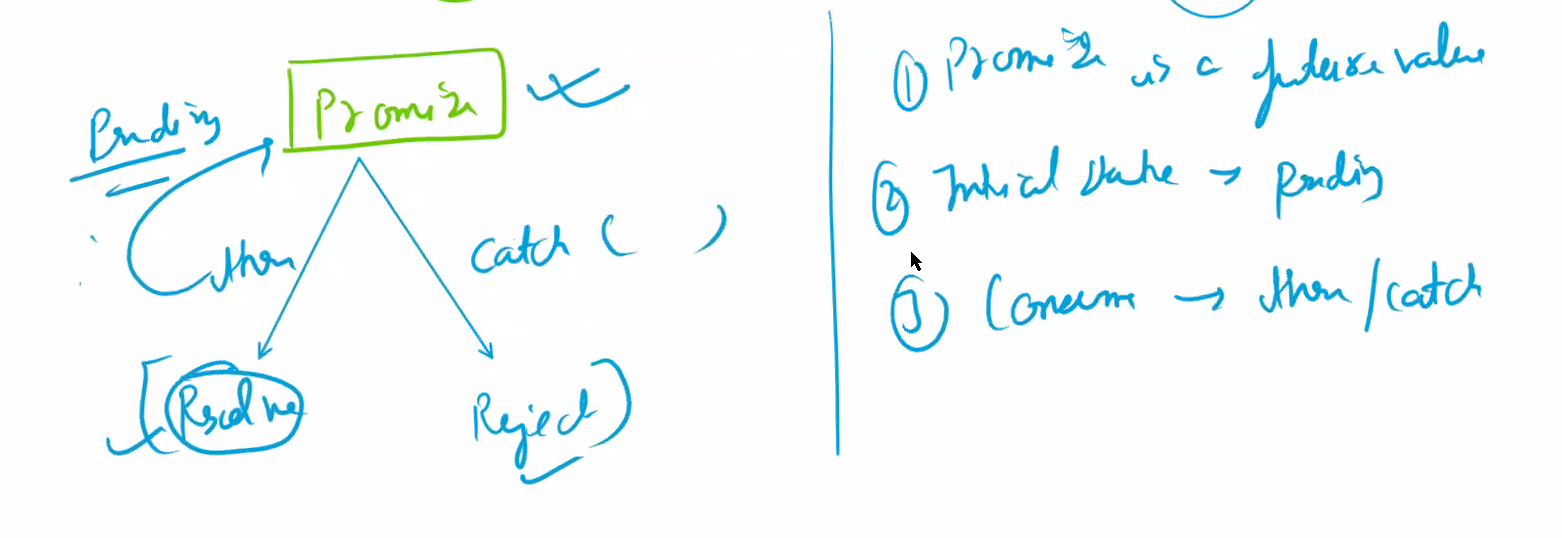 Promise
Pending
then
Catch ( )
Resolve
Reject
① Promise is a future value
② Initial State → Pending
③ Consume → then/catch